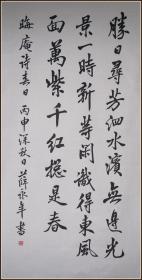 勝日尋芳泗水濱無邊光
景一時新等閑識得東風
面萬紫千紅總是春
晦庵詩春日 丙申深秋日 薛永年書